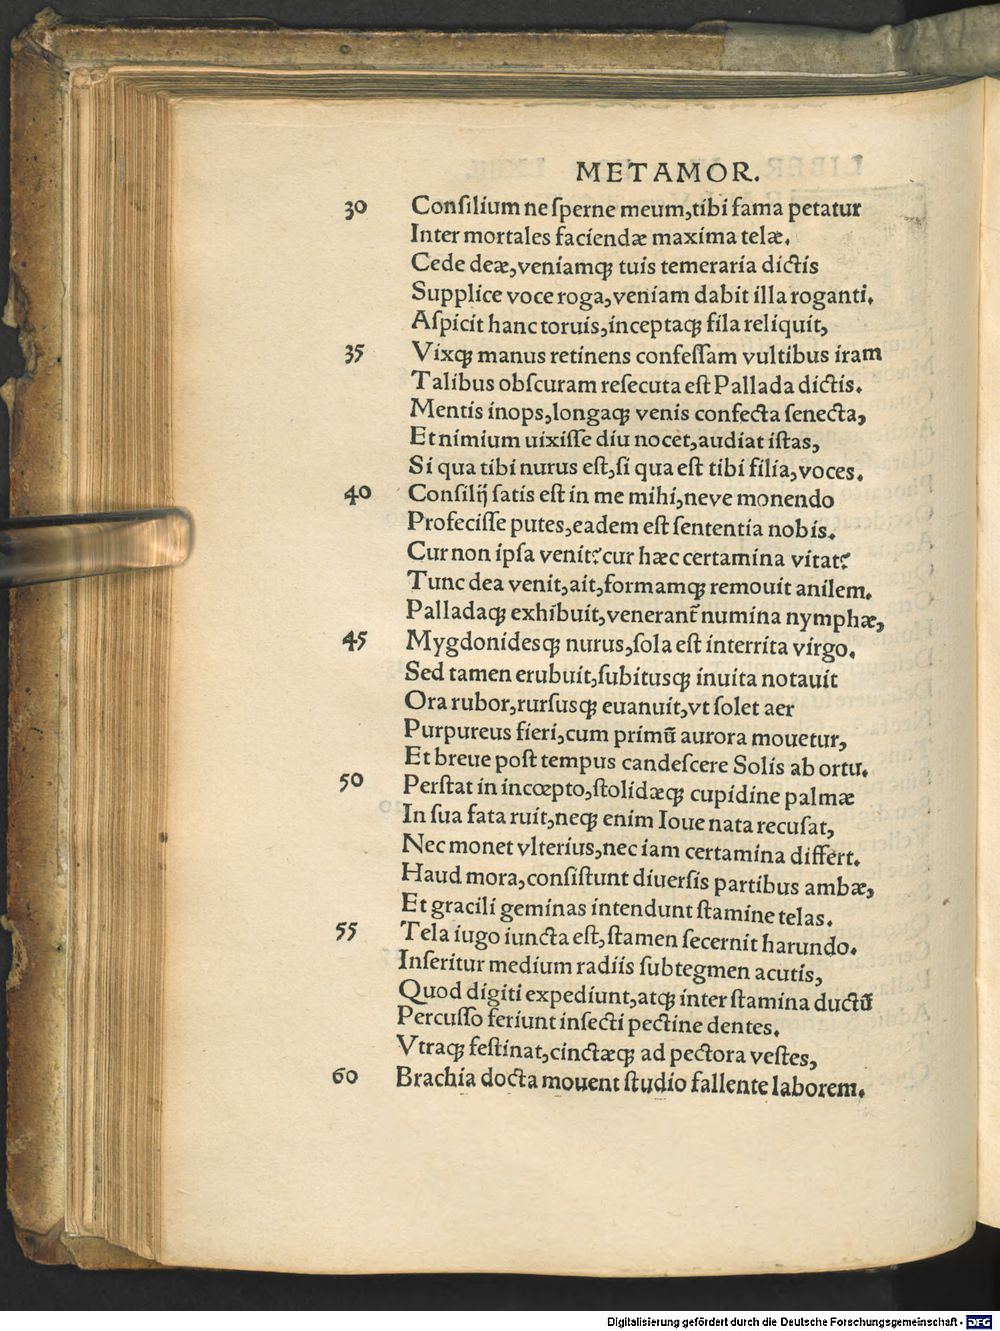 METAMOR.
30 Conſilium ne ſperne meum, tibi fama petatur
Inter mortales faciendæ maxima telæ.
Cede deæ, veniamqꝫ tuis temeraria dictis
Supplice voce roga, veniam dabit illa roganti.
Aſpicit hanc toruis, inceptaqꝫ fila reliquit,
35 Vixqꝫ manus retinens confeſſam vultibus iram
Talibus obſcuram reſecuta eſt Pallada dictis.
Mentis inops, longaqꝫ venis confecta ſenecta,
Et nimium uixiſſe diu nocet, audiat iſtas,
Si qua tibi nurus eſt, ſi qua eſt tibi filia, voces.
40 Conſilij ſatis eſt in me mihi, neve monendo
Profeciſſe putes, eadem eſt ſententia nobis.
Cur non ipſa venit? cur hæc certamina vitat?
Tunc dea venit, ait, formamqꝫ remouit anilem.
Palladaqꝫ exhibuit, venerant᷑ numina nymphæ,
45 Mygdonidesqꝫ nurus, ſola eſt interrita virgo.
Sed tamen erubuit, ſubitusqꝫ inuita notauit
Ora rubor, rurſusqꝫ euanuit, vt ſolet aer
Purpureus fieri, cum primũ aurora mouetur,
Et breue poſt tempus candeſcere Solis ab ortu.
50 Perſtat in incœpto, ſtolidæqꝫ cupidine palmæ
In ſua fata ruit, neqꝫ enim Ioue nata recuſat,
Nec monet vlterius, nec iam certamina differt.
Haud mora, conſiſtunt diuerſis partibus ambæ,
Et gracili geminas intendunt ſtamine telas.
55 Tela iugo iuncta eſt, ſtamen ſecernit harundo.
Inſeritur medium radiis ſubtegmen acutis,
Quod digiti expediunt, atqꝫ inter ſtamina ductũ
Percuſſo feriunt inſecti pectine dentes.
Vtraqꝫ feſtinat, cinctæqꝫ ad pectora veſtes,
60 Brachia docta mouent ſtudio fallente laborem.
Digitalisierung gefördert durch die Deutsche Forschungsgemeinschaft - DFG